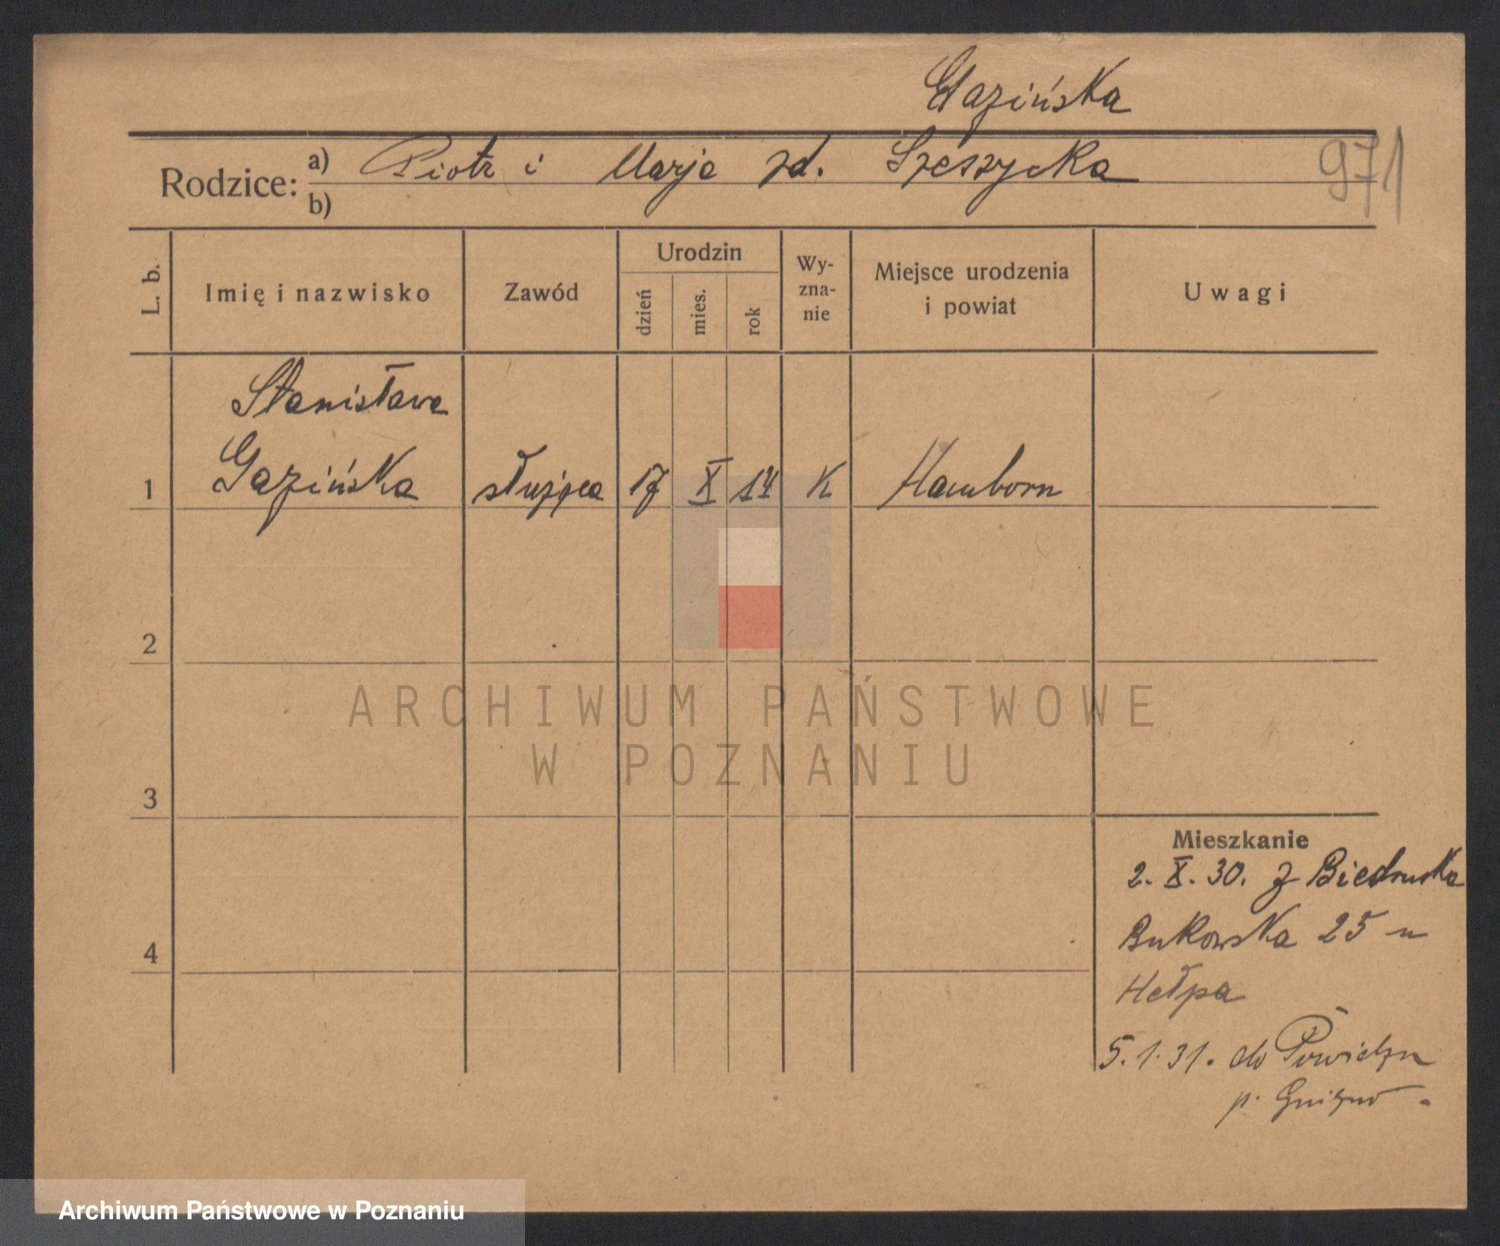 Gazińska
Rodzice: a) Piotr i Marja zd. Szeszycka
b)
971
L. b.
Imię i nazwisko
Zawód
Urodzin
dzień
mies.
rok
Wy-
zna-
nie
Miejsce urodzenia
i powiat
Uwagi
Stanisława
1 Gazińska służąca 17 X 14 K Hamborn
2
3
4
ARCHIWUM PAŃSTWOWE
W POZNANIU
Mieszkanie
2. X. 30. z Biedruska
Bukowska 25 u
Hełpa
5.1.31. do Powidza
p. Gniezno -
Archiwum Państwowe w Poznaniu